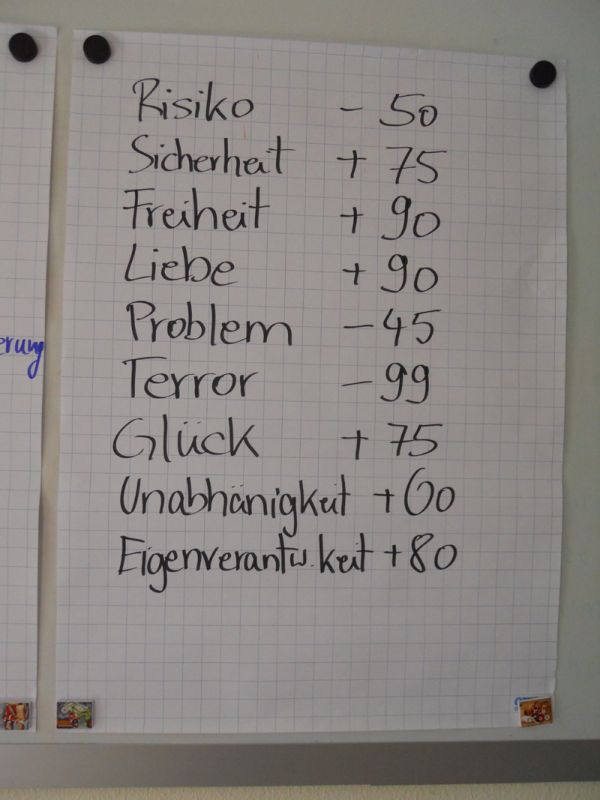 Risiko - 50
Sicherheit + 75
Freiheit + 90
Liebe + 90
Problem - 45
Terror - 99
Glück + 75
Unabhänigkeit + 60
Eigenverantw.keit + 80
erung